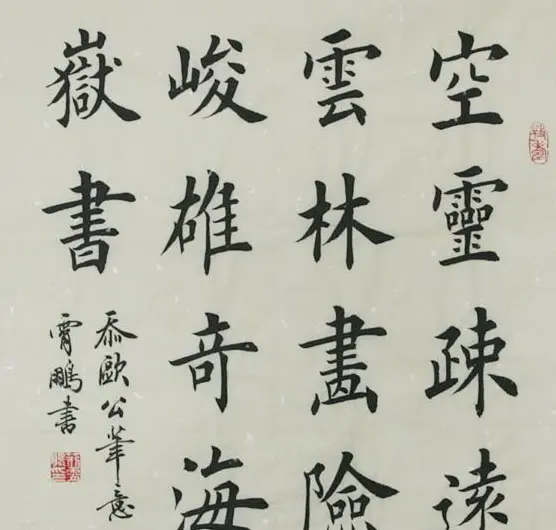 空靈疎遠
雲林畫險
峻雄奇海
嶽書
忝歐公筆意
霄鵬書